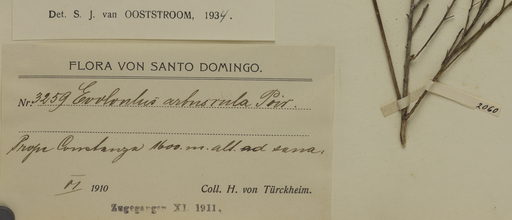 Det. S. J. van OOSTSTROOM, 1934.
FLORA VON SANTO DOMINGO.
Nr. 3259 Evolvulus arbuscula Poir.
Prope Constanza 1600 m. alt. ad
VI 1910 Coll. H. von Türckheim.
Zugegangen XI 1911.
2060